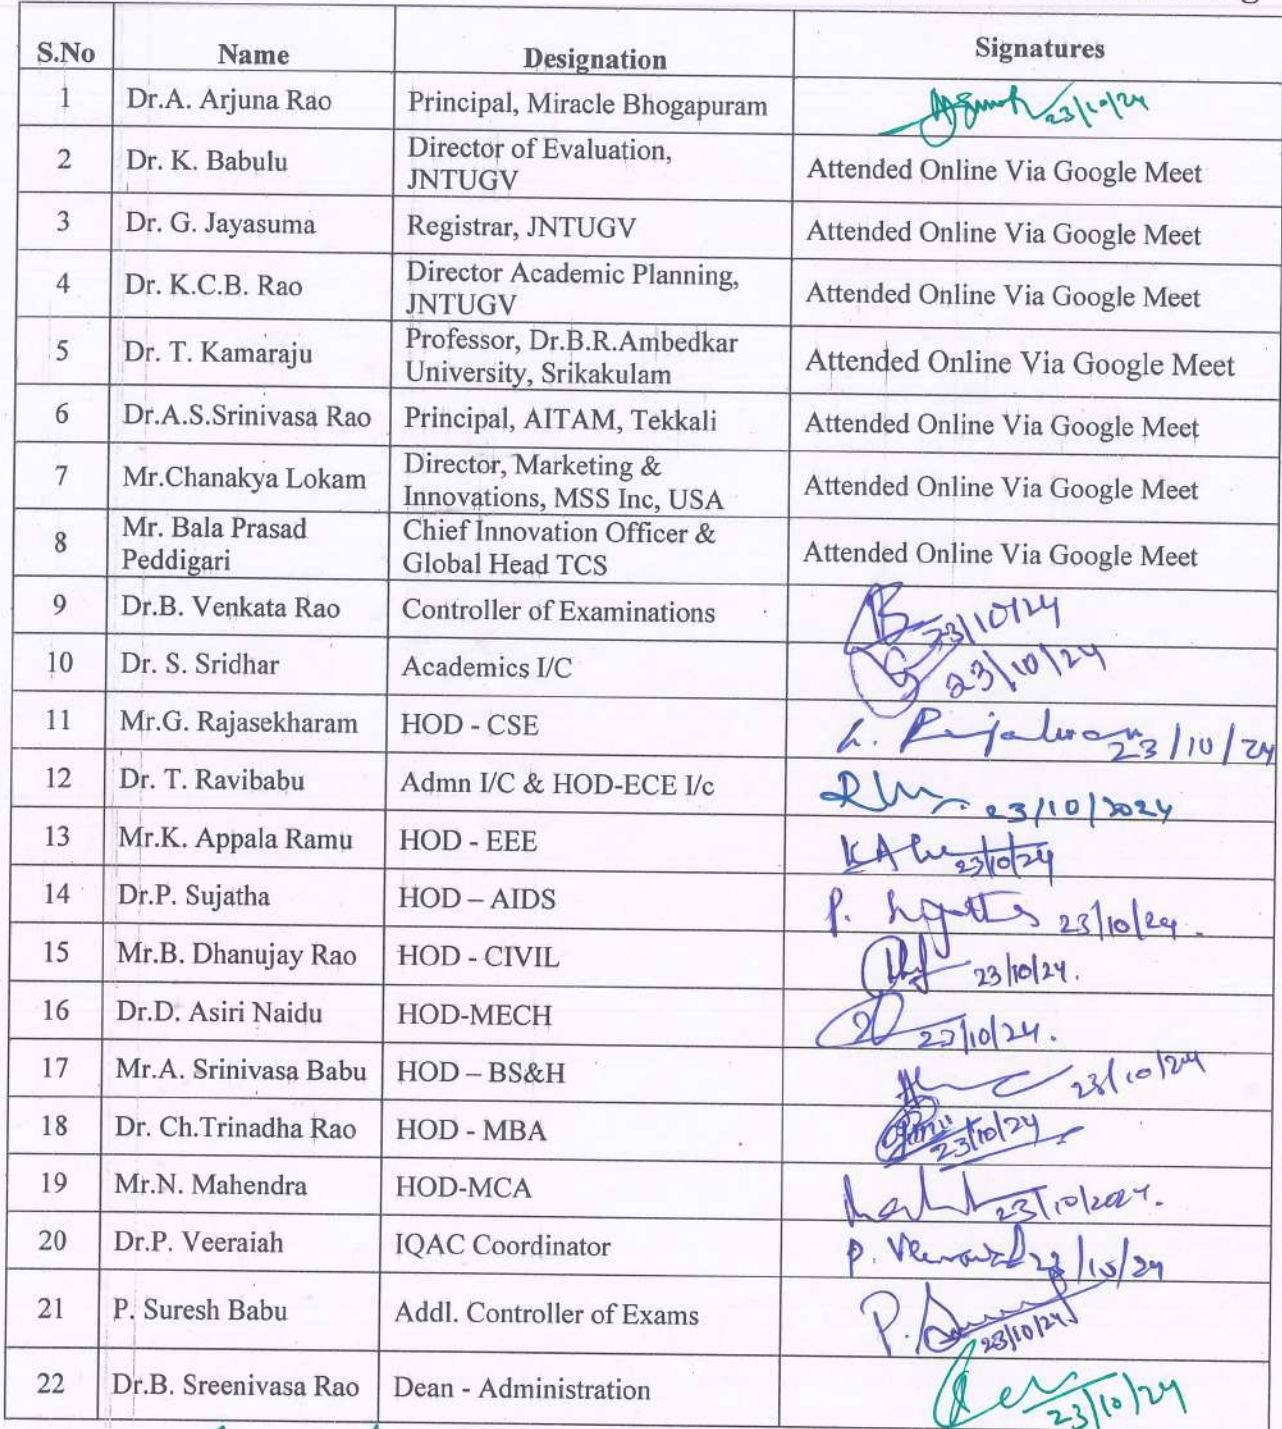 S.No Name Designation Signatures
1 Dr.A. Arjuna Rao Principal, Miracle Bhogapuram 23/10/24
2 Dr. K. Babulu Director of Evaluation, JNTUGV Attended Online Via Google Meet
3 Dr. G. Jayasuma Registrar, JNTUGV Attended Online Via Google Meet
4 Dr. K.C.B. Rao Director Academic Planning, JNTUGV Attended Online Via Google Meet
5 Dr. T. Kamaraju Professor, Dr.B.R.Ambedkar University, Srikakulam Attended Online Via Google Meet
6 Dr.A.S.Srinivasa Rao Principal, AITAM, Tekkali Attended Online Via Google Meet
7 Mr.Chanakya Lokam Director, Marketing & Innovations, MSS Inc, USA Attended Online Via Google Meet
8 Mr. Bala Prasad Peddigari Chief Innovation Officer & Global Head TCS Attended Online Via Google Meet
9 Dr.B. Venkata Rao Controller of Examinations 23/10/24
10 Dr. S. Sridhar Academics I/C 23/10/24
11 Mr.G. Rajasekharam HOD - CSE 23/10/24
12 Dr. T. Ravibabu Admn I/C & HOD-ECE I/c 23/10/2024
13 Mr.K. Appala Ramu HOD - EEE 23/10/24
14 Dr.P. Sujatha HOD – AIDS P. 23/10/24.
15 Mr.B. Dhanujay Rao HOD - CIVIL 23/10/24.
16 Dr.D. Asiri Naidu HOD-MECH 23/10/24.
17 Mr.A. Srinivasa Babu HOD – BS&H 23/10/24
18 Dr. Ch.Trinadha Rao HOD - MBA 23/10/24
19 Mr.N. Mahendra HOD-MCA 23/10/2024.
20 Dr.P. Veeraiah IQAC Coordinator P. 23/10/24
21 P. Suresh Babu Addl. Controller of Exams P. 23/10/24
22 Dr.B. Sreenivasa Rao Dean - Administration 23/10/24